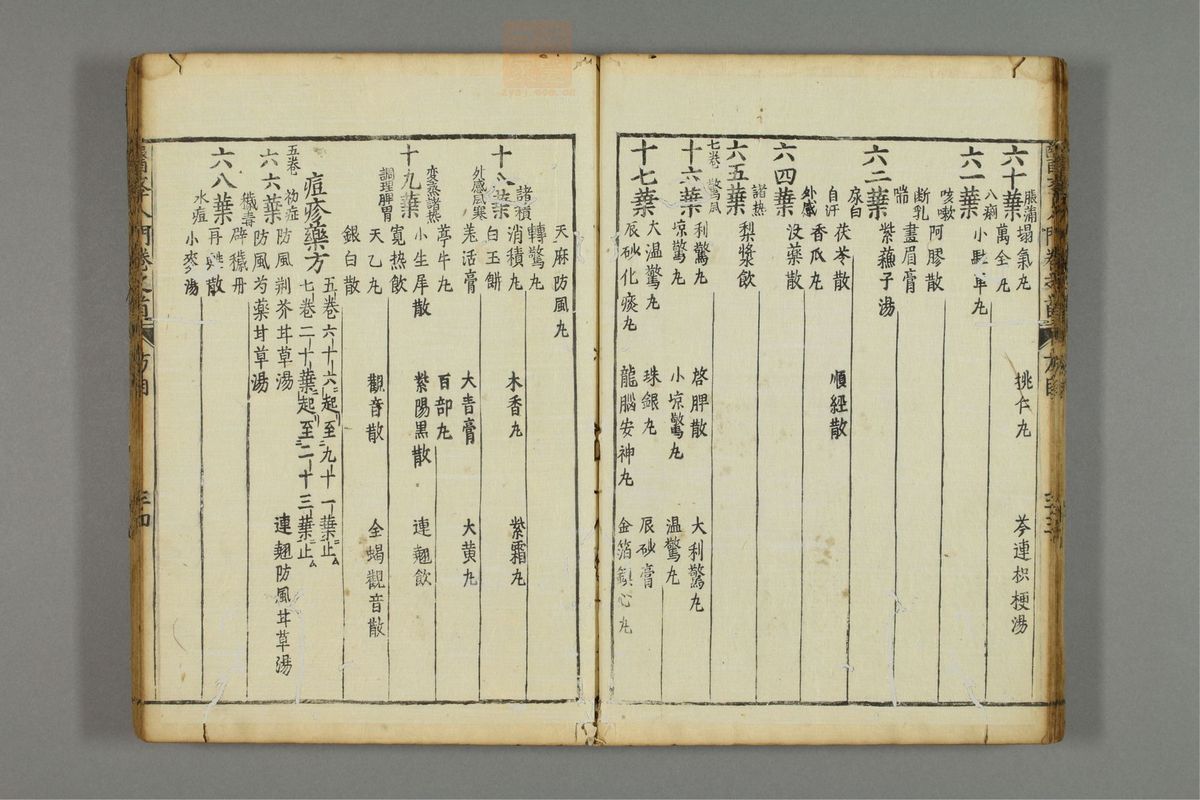 六十葉 脹滿 塌氣丸 挑仁丸 芩連枳梗湯
八痢 萬全丸
小駐車丸
六一葉 咳嗽 阿膠散
断乳 畫眉膏
喘 紫蘓子湯
六二葉 尿白 茯苓散 順經散
自汗 香瓜丸
外感 没藥散
六四葉 諸热 梨漿飲
六五葉
七卷 驚風 利驚丸 啓脾散 大利驚丸
十六葉 凉驚丸 小凉驚丸 温驚丸
大温驚丸 珠銀丸 辰砂膏
十七葉 辰砂化痰丸 龍腦安神丸 金箔鎮心丸
天麻防風丸
轉驚丸
十八葉 諸積 消積丸 木香丸 紫霜丸
白玉餅
外感風寒 羗活膏 大青膏 大黄丸
葶牛丸 百部丸
变蒸諸热 小生犀散 紫陽黒散 連翹飲
十九葉 寛热飲
調理脾胃 天乙丸 觀音散 全蝎觀音散
銀白散
痘疹藥方 五卷六十六葉起至九十一葉止
七卷二十葉起至二十三葉止
五卷 初症 防風荊芥甘草湯 連翹防風甘草湯
六六葉 防風芍藥甘草湯
穢毒 辟穢丹
六八葉 再甦散
水痘 小麥湯